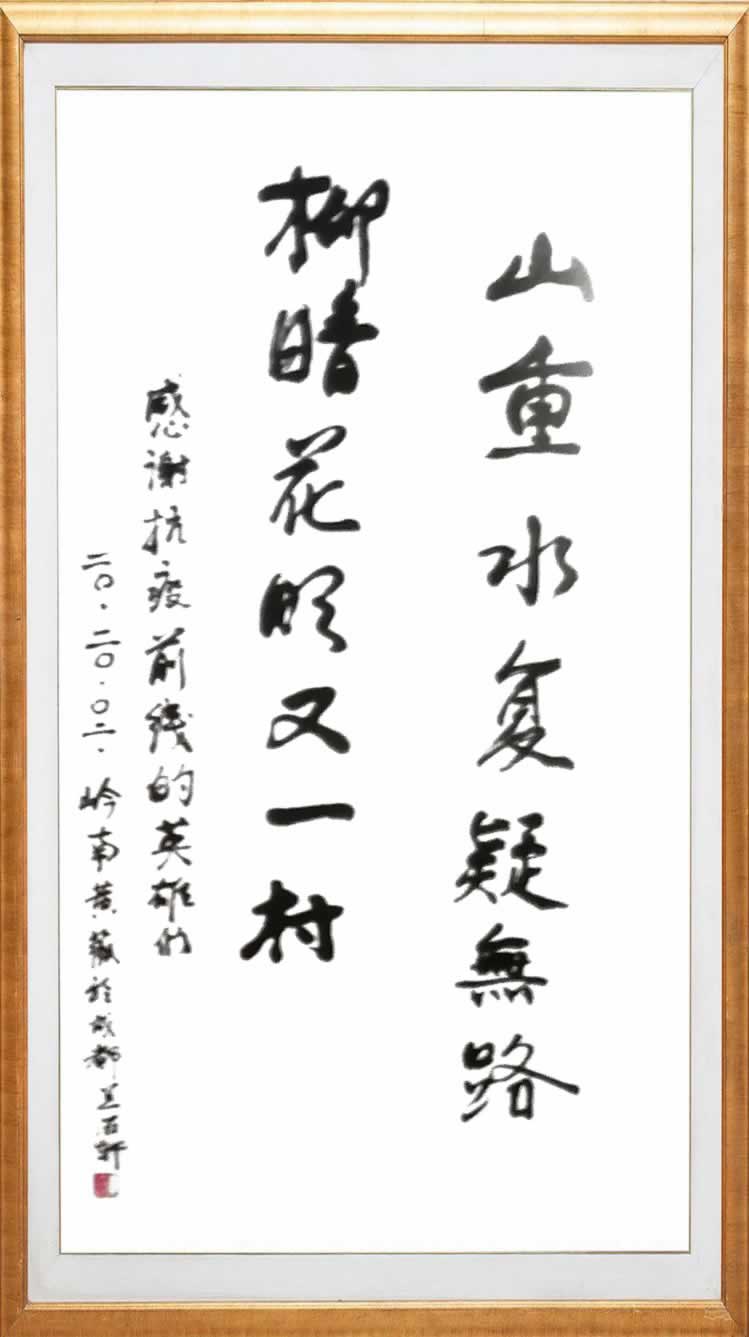 山重水复疑無路
柳暗花明又一村
感謝抗疫前线的英雄们
二〇·二〇·〇二·岭南黄薇於成都兰石轩